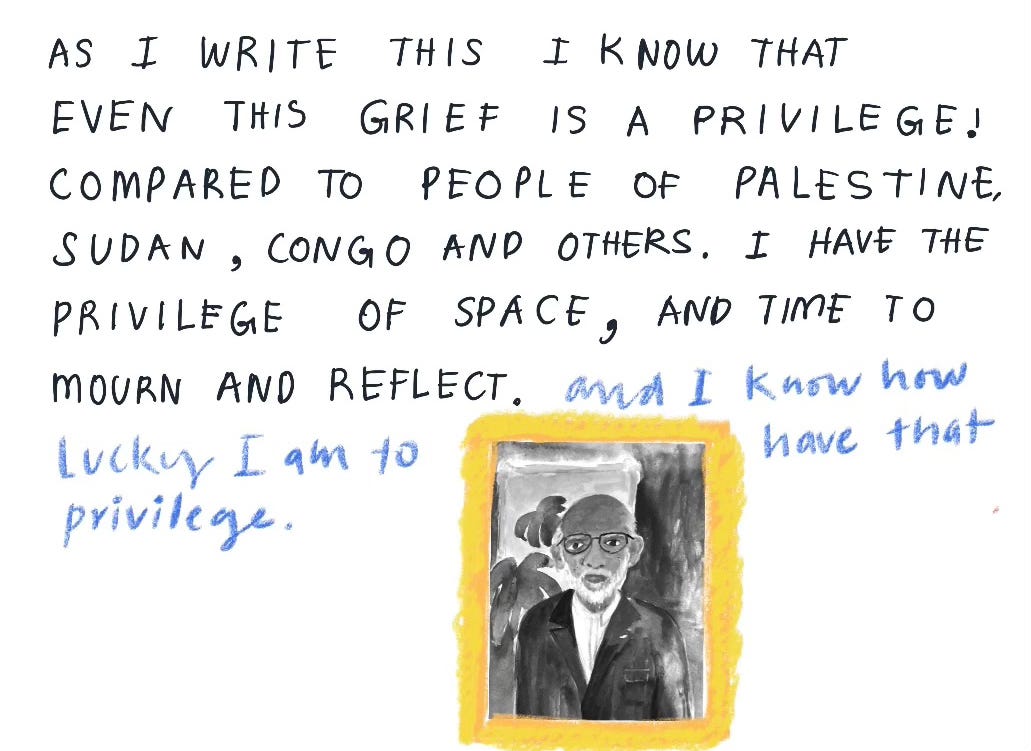 AS I WRITE THIS I KNOW THAT
EVEN THIS GRIEF IS A PRIVILEGE!
COMPARED TO PEOPLE OF PALESTINE,
SUDAN, CONGO AND OTHERS. I HAVE THE
PRIVILEGE OF SPACE, AND TIME TO
MOURN AND REFLECT. and I know how
Lucky I am to have that
privilege.